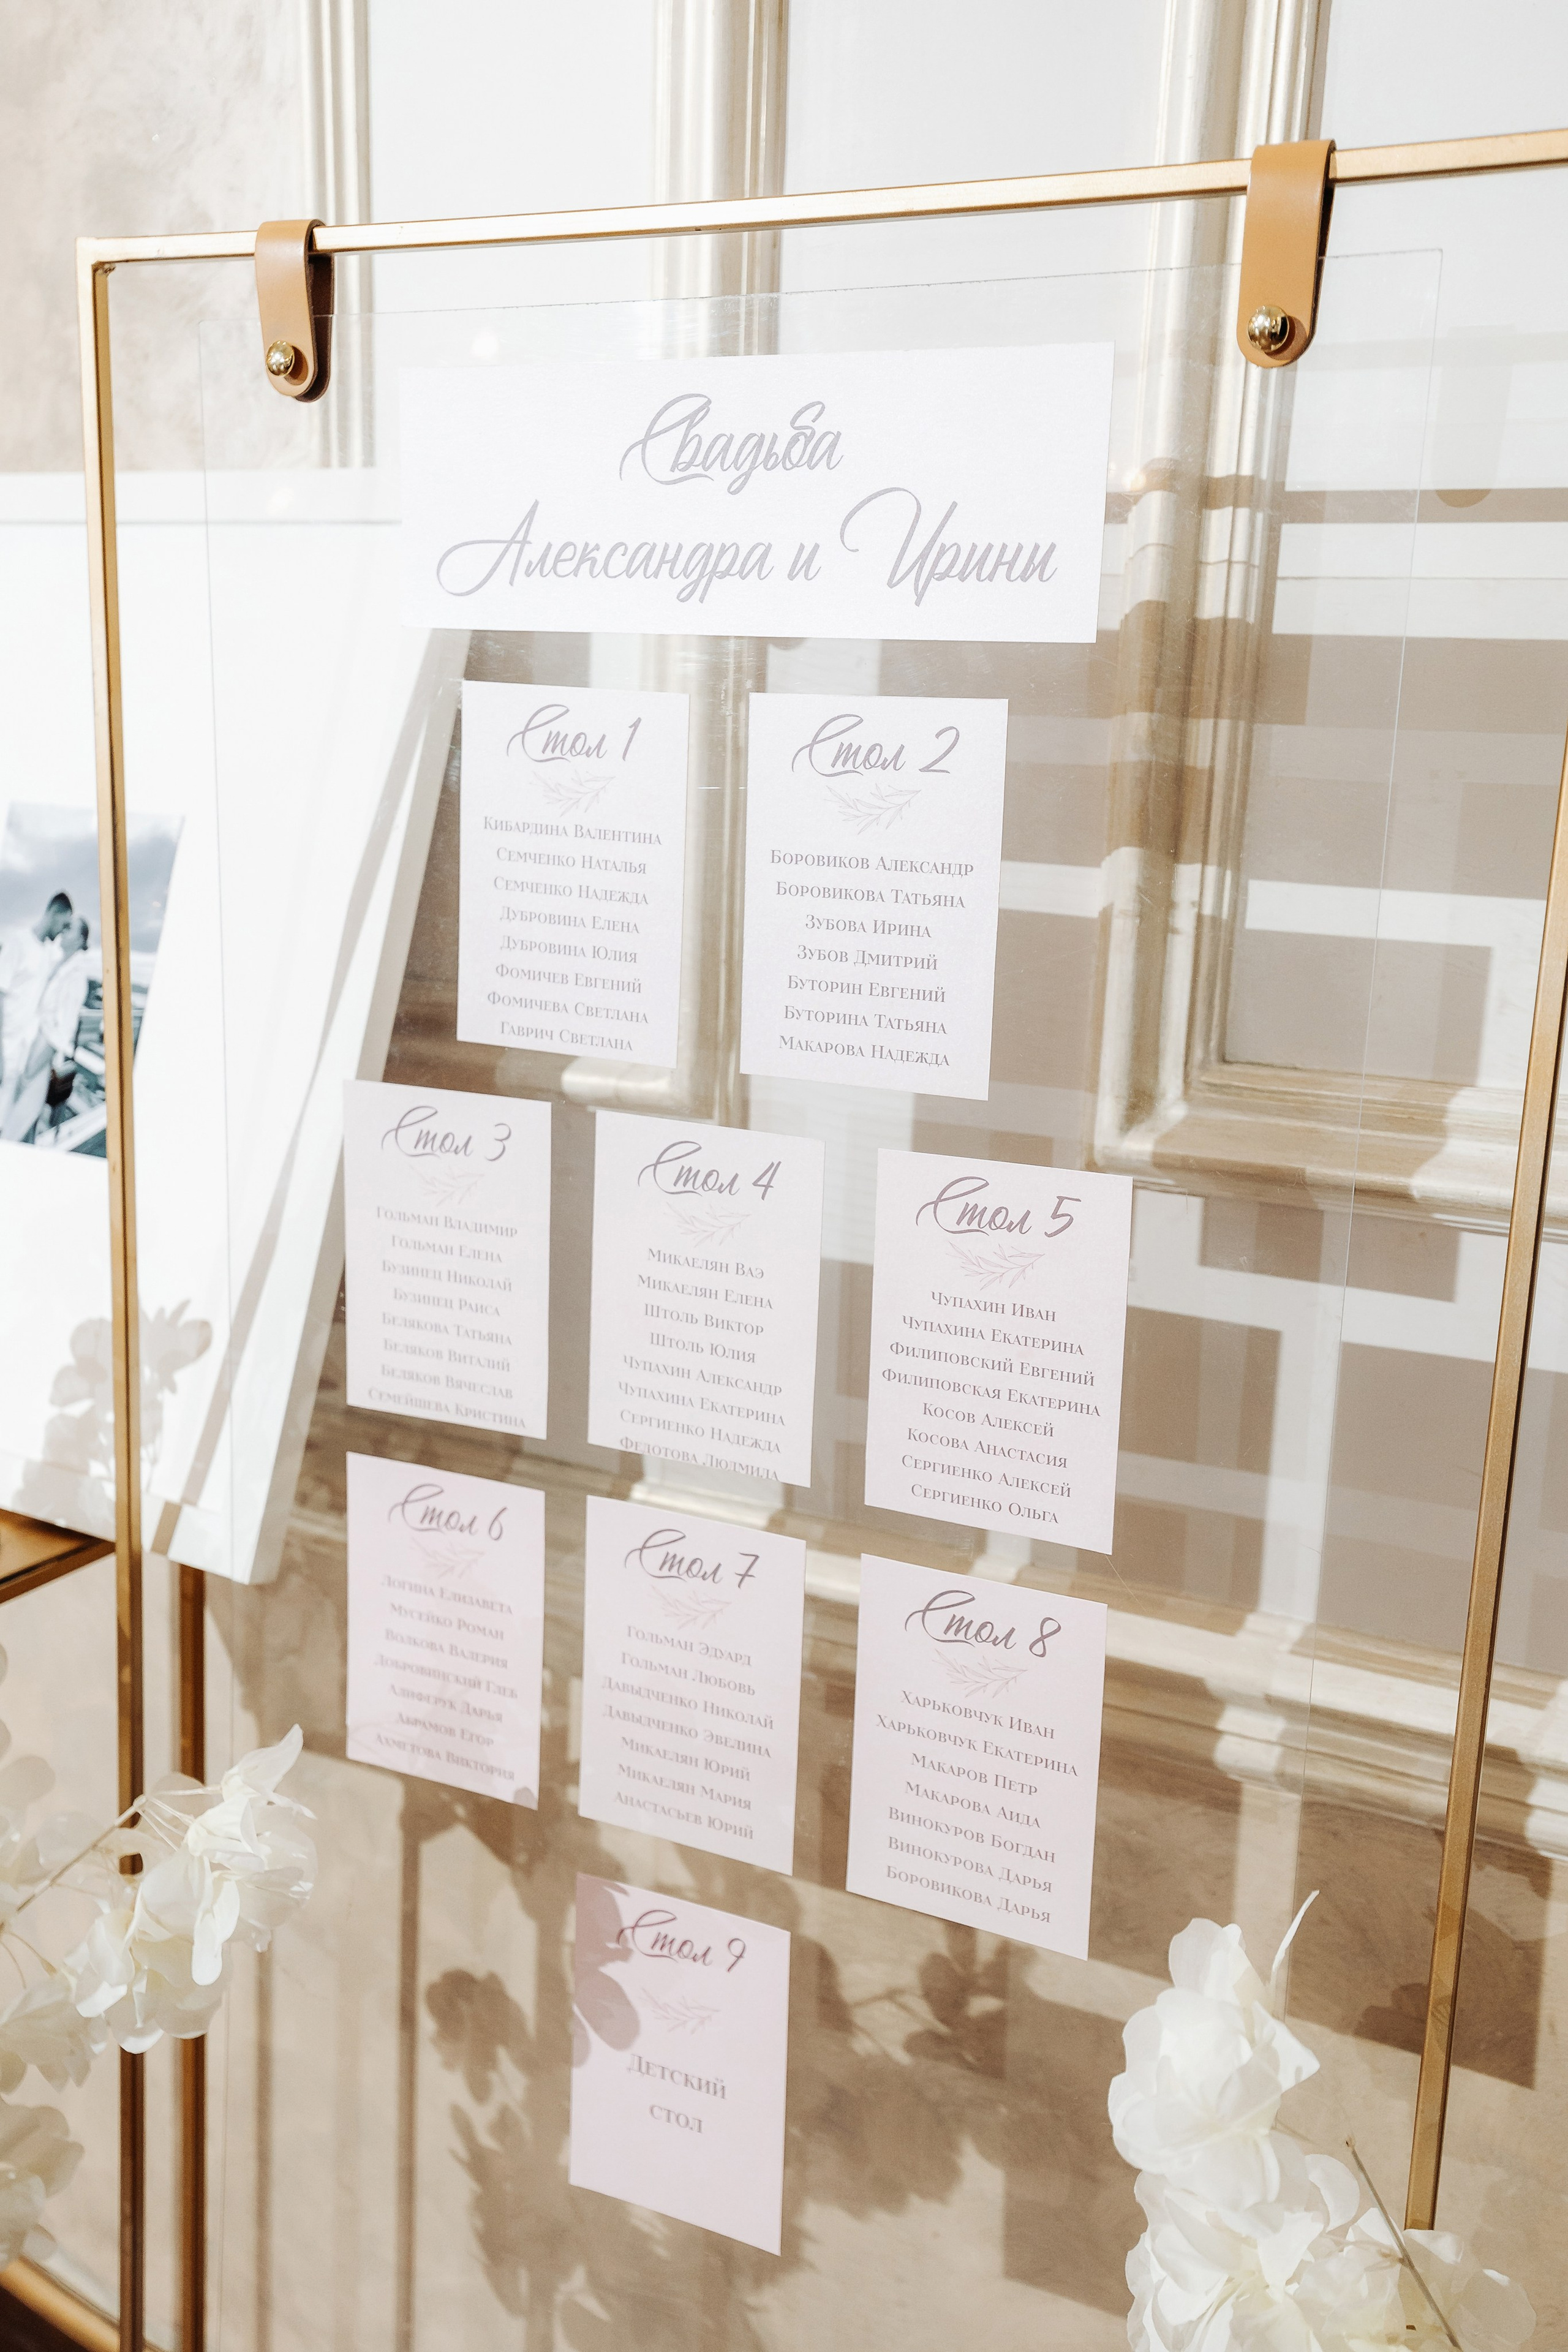 Свадьба
Александра и Ирины
Стол 1
Кибардина Валентина
Семченко Наталья
Семченко Надежда
Дубровина Елена
Дубровина Юлия
Фомичев Евгений
Фомичева Светлана
Гаврич Светлана
Стол 2
Боровиков Александр
Боровикова Татьяна
Зубова Ирина
Зубов Дмитрий
Буторин Евгений
Буторина Татьяна
Макарова Надежда
Стол 3
Гольман Владимир
Гольман Елена
Бузинец Николай
Бузинец Раиса
Белякова Татьяна
Беляков Виталий
Беляков Вячеслав
Семейшева Кристина
Стол 4
Микаелян Ваэ
Микаелян Елена
Штоль Виктор
Штоль Юлия
Чупахин Александр
Чупахина Екатерина
Сергиенко Надежда
Федотова Людмила
Стол 5
Чупахин Иван
Чупахина Екатерина
Филиповский Евгений
Филиповская Екатерина
Косов Алексей
Косова Анастасия
Сергиенко Алексей
Сергиенко Ольга
Стол 6
Логина Елизавета
Мусейко Роман
Волкова Валерия
Добровинский Глеб
Алиферук Дарья
Абрамов Егор
Ахметова Виктория
Стол 7
Гольман Эдуард
Гольман Любовь
Давыдченко Николай
Давыдченко Эвелина
Микаелян Юрий
Микаелян Мария
Анастасьев Юрий
Стол 8
Харьковчук Иван
Харьковчук Екатерина
Макаров Петр
Макарова Аида
Винокуров Богдан
Винокурова Дарья
Боровикова Дарья
Стол 9
Детский
стол